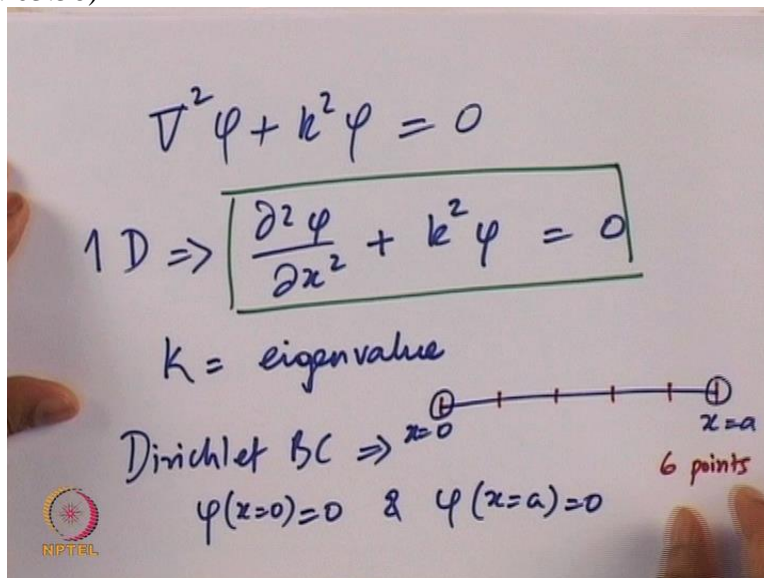 ∇²φ + k²φ = 0
1 D ⇒ ∂²φ/∂x² + k²φ = 0
K = eigenvalue
Dirichlet BC ⇒ x=0 x=a
6 points
φ(x=0)=0 & φ(x=a)=0
NPTEL